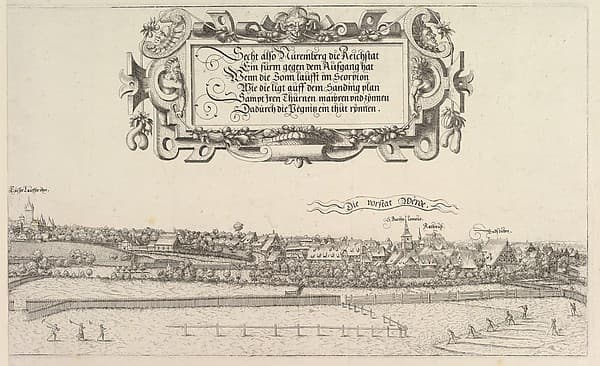 Secht also Nüremberg die Reichstat
Ein fürm gegen dem Aüfgang hat
Wenn die Sonn laüfft im Scorpion
Wie die ligt aüff dem Sanding plan
Sampt jren Thürnen maüren vnd zünnen
Dadurch die Pegnis ein thüt rynnen.
Die vorstat Werde.
S. Bartholomeus.